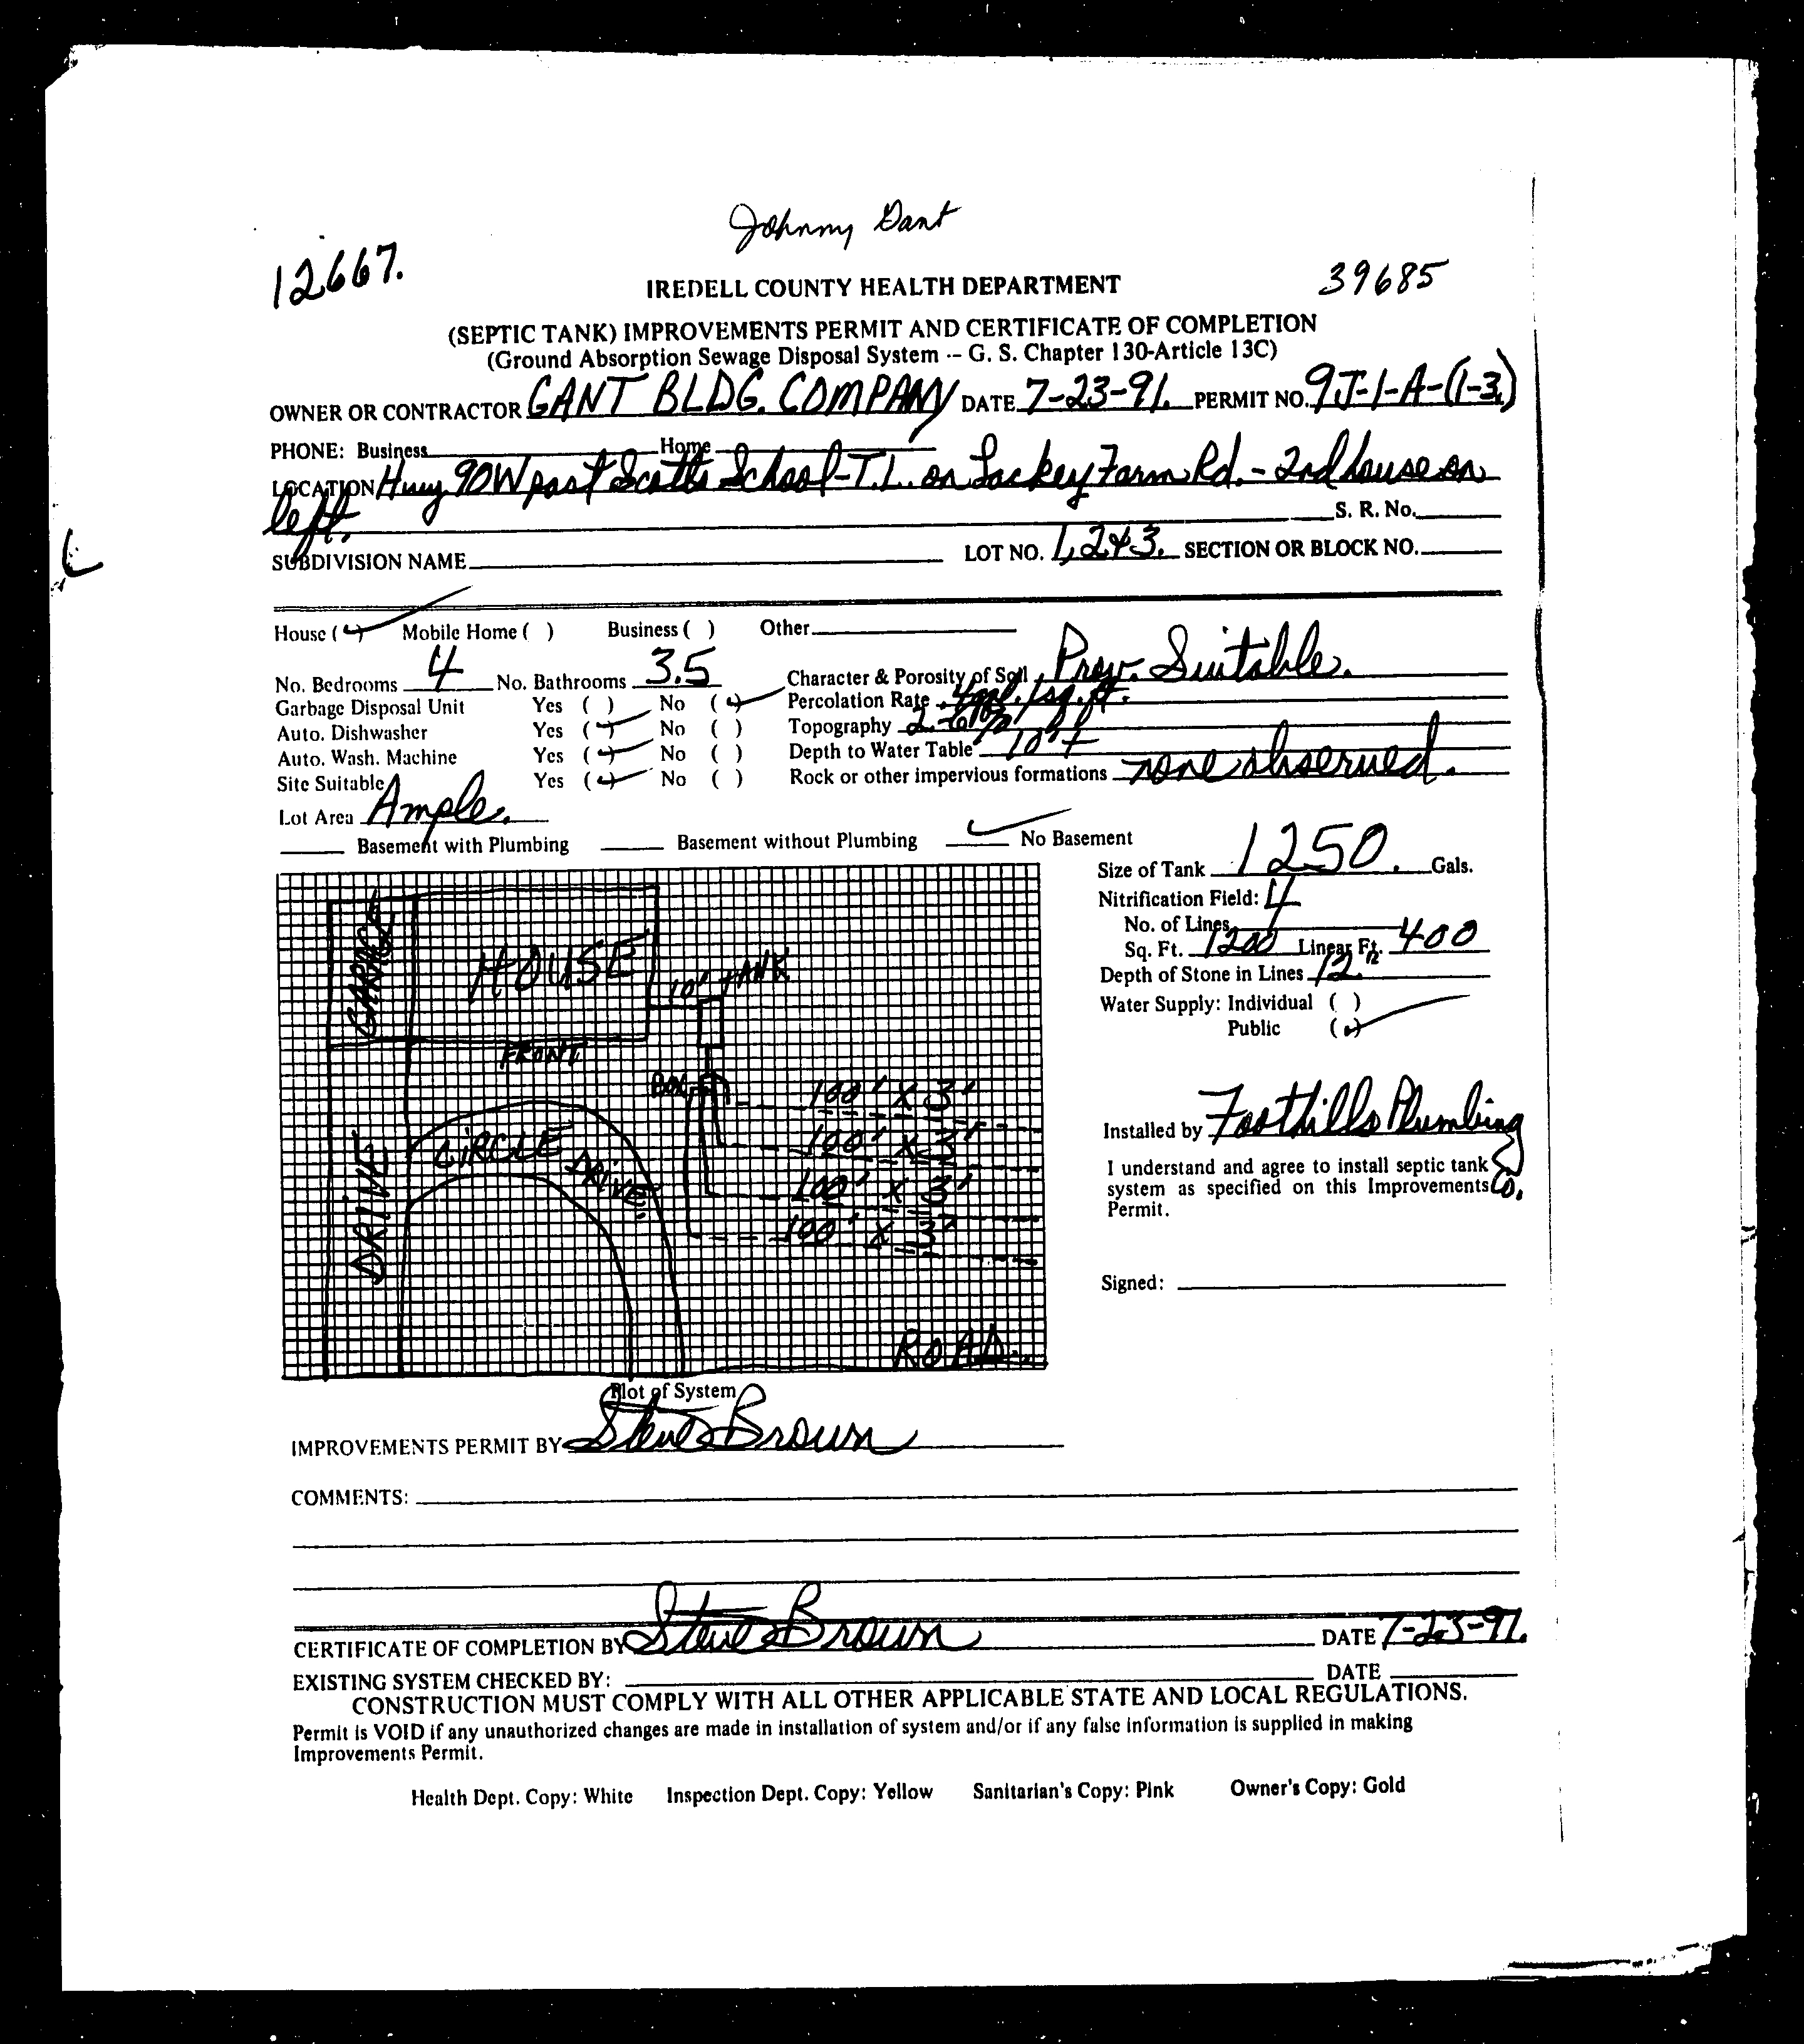 Johnny Gant
12667.
39685
IREDELL COUNTY HEALTH DEPARTMENT
(SEPTIC TANK) IMPROVEMENTS PERMIT AND CERTIFICATE OF COMPLETION
(Ground Absorption Sewage Disposal System -- G. S. Chapter 130-Article 13C)
OWNER OR CONTRACTOR GANT BLDG. COMPANY DATE 7-23-91. PERMIT NO. 9J-1-A-(1-3)
PHONE: Business Home
LOCATION Hwy 90W past Scotts School-T.L. on Lackey Farm Rd. - 2nd house on
left. S. R. No.
SUBDIVISION NAME LOT NO. 1,2+3. SECTION OR BLOCK NO.
House ( ) Mobile Home ( ) Business ( ) Other
No. Bedrooms 4 No. Bathrooms 3.5 Character & Porosity of Soil Prov. Suitable.
Garbage Disposal Unit Yes ( ) No ( ) Percolation Rate .4gal./sq.ft.
Auto. Dishwasher Yes ( ) No ( ) Topography
Auto. Wash. Machine Yes ( ) No ( ) Depth to Water Table 10'+
Site Suitable Yes ( ) No ( ) Rock or other impervious formations none observed.
Lot Area Ample.
Basement with Plumbing Basement without Plumbing No Basement
Size of Tank 1250. Gals.
Nitrification Field:
No. of Lines 4
Sq. Ft. 1200 Linear Ft. 400
Depth of Stone in Lines 12"
Water Supply: Individual ( )
Public ( )
GARAGE
HOUSE
10' TANK
FRONT
BOX
100' X 3'
100' X 3'
100' X 3'
100' X 3'
CIRCLE DRIVE
DRIVE
ROAD
Installed by Foothills Plumbing Co.
I understand and agree to install septic tank
system as specified on this Improvements
Permit.
Signed:
Plot of System
IMPROVEMENTS PERMIT BY Steve Brown
COMMENTS:
CERTIFICATE OF COMPLETION BY Steve Brown DATE 7-23-91.
EXISTING SYSTEM CHECKED BY: DATE
CONSTRUCTION MUST COMPLY WITH ALL OTHER APPLICABLE STATE AND LOCAL REGULATIONS.
Permit is VOID if any unauthorized changes are made in installation of system and/or if any false information is supplied in making
Improvements Permit.
Health Dept. Copy: White Inspection Dept. Copy: Yellow Sanitarian's Copy: Pink Owner's Copy: Gold